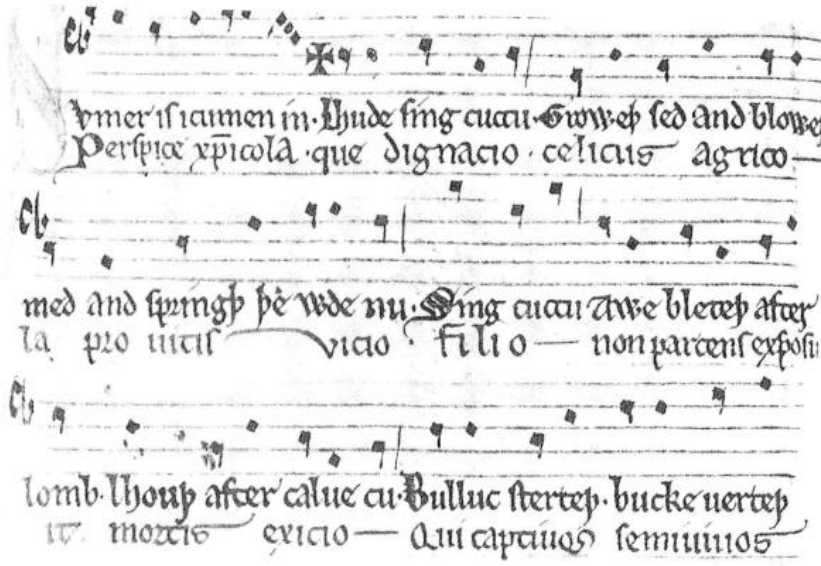 vmer is icumen in· Lhude sing cuccu· Groweþ sed and blowe
Perspice xp̄icola · que dignacio · celicus agrico
med and springþ þe wde nu· Sing cuccu Awe bleteþ after
la pro uitis vicio · filio non parcens exposu
lomb· lhouþ after calue cu· Bulluc sterteþ· bucke uerteþ
it mortis exicio Qui captiuos semiuiuos